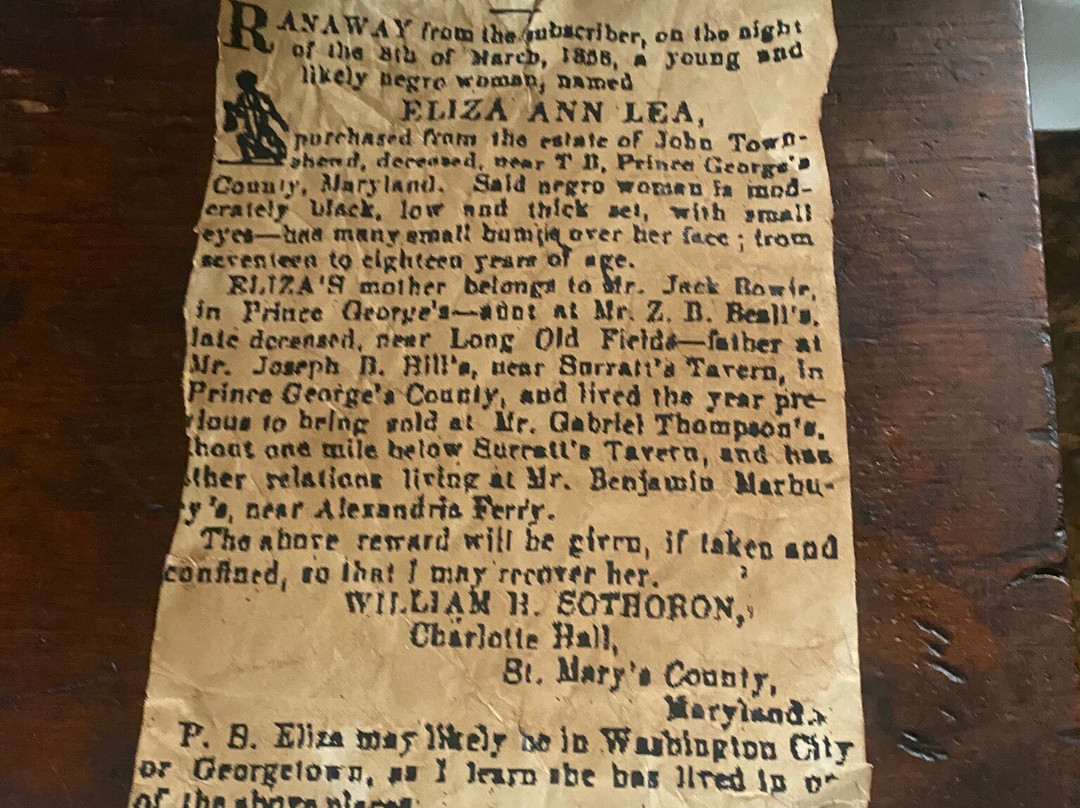 RANAWAY from the subscriber, on the night
of the 8th of March, 1856, a young and
likely negro woman, named
ELIZA ANN LEA,
purchased from the estate of John Town-
shend, deceased, near T B, Prince George's
County, Maryland. Said negro woman is mod-
erately black, low and thick set, with small
eyes—has many small bumps over her face; from
seventeen to eighteen years of age.
ELIZA'S mother belongs to Mr. Jack Bowie,
in Prince George's—aunt at Mr. Z. B. Beall's,
late deceased, near Long Old Fields—father at
Mr. Joseph B. Hill's, near Surratt's Tavern, in
Prince George's County, and lived the year pre-
vious to being sold at Mr. Gabriel Thompson's,
bout one mile below Surratt's Tavern, and has
ther relations living at Mr. Benjamin Marbu-
y's, near Alexandria Ferry.
The above reward will be given, if taken and
confined, so that I may recover her.
WILLIAM H. SOTHORON,
Charlotte Hall,
St. Mary's County,
Maryland.
P. S. Eliza may likely be in Washington City
or Georgetown, as I learn she has lived in or
of the above places